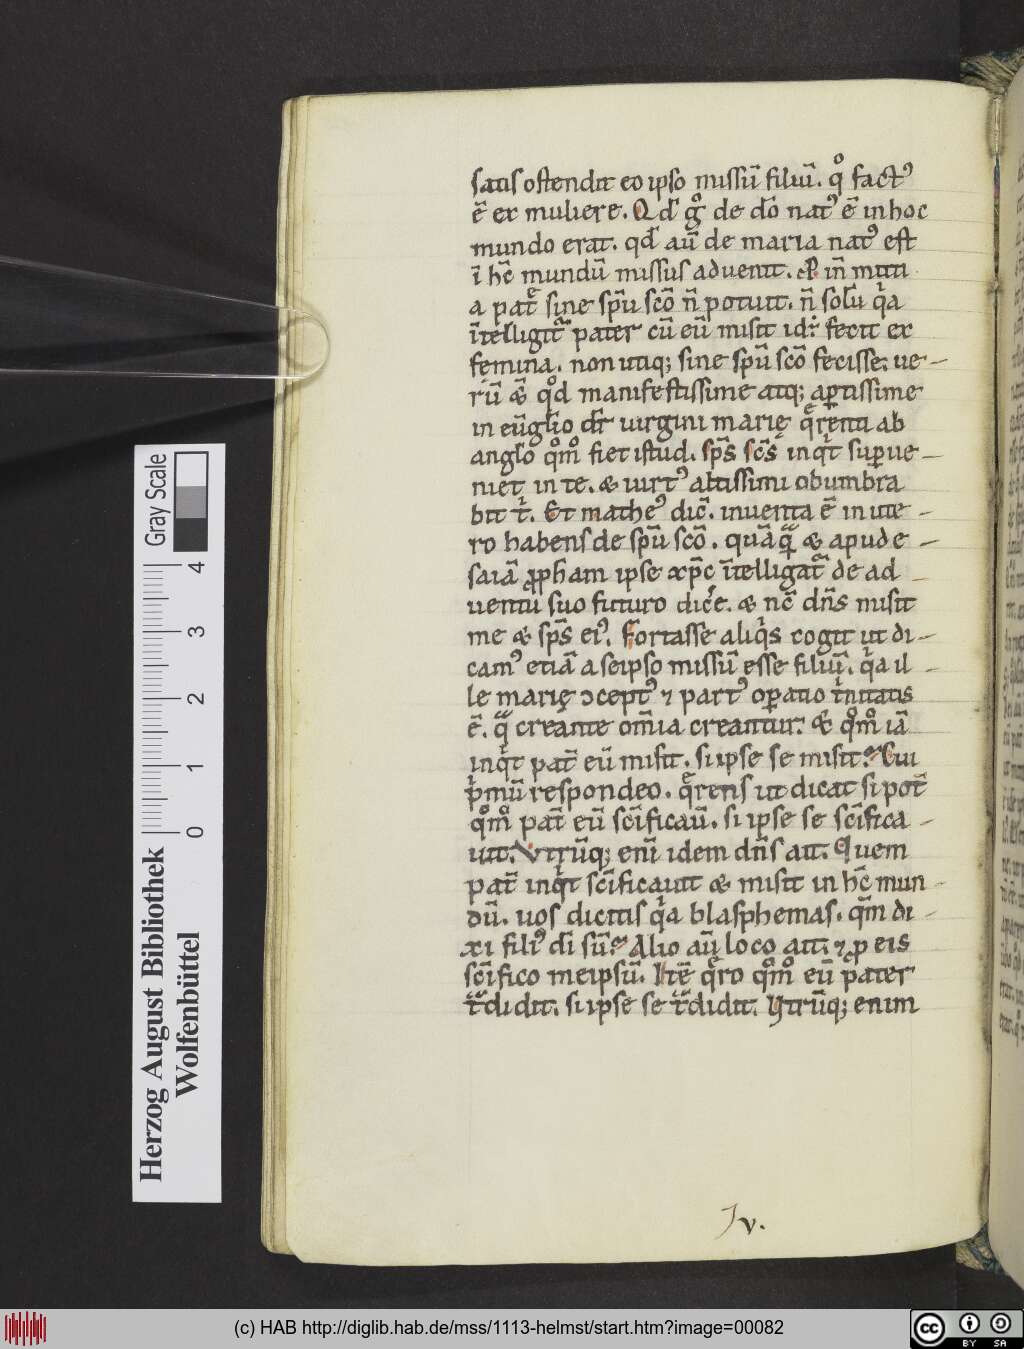 satis ostendit eo ipso missū filiū. qͦ factꝰ
ē ex muliere. Qd̄ gͦ de dō natꝰ ē in hoc
mundo erat. qd̄ aū de maria natꝰ est
ī hc̄ mundū missus aduenit. in̄ mitti
a patͤ sine sp̄u scō n̄ potuit. n̄ solū qͥa
ītelligitᷓ pater cū eū misit idÞ fecit ex
femina. non utiq; sine sp̄u scō fecisse. ue-
rū & qͦd manifestissime atq; aꝑtissime
in eūglio dr̄ uirgini marię qͤrenti ab
anglo qͦmͦ fiet istud. sp̄s sc̄s inqͥt suꝑue-
niet in te. & uirtꝰ altissimi obumbra
bit tͥ. Et matheꝰ dic̄. inuenta ē in ute-
ro habens de sp̄u scō. quāqᷓꝫ & apud e-
saiā ꝓpham ipse xp̄c ītelligatᷓ de ad-
uentu suo futuro dicē. & nc̄ dn̄s misit
me & sp̄s eiꝰ. Fortasse aliqͥs cogit ut di-
camꝰ etiā a seipso missū esse filiū. qͥa il-
le marię ↄceptꝰ ⁊ partꝰ oꝑatio tͥnitatis
ē. qᷓ creante om̄ia creantur. & qͦmͦ iā
inqͥt pat̄ eū misit. si ipse se misit. Cui
pͥmū respondeo. qͤrens ut dicat si pot̄
qͦmͦ pat̄ eū sc̄ificaū. si ipse se sc̄ifica-
uit. Vtrūq; enī idem dn̄s ait. Quem
pat̄ inqͥt sc̄ificauit & misit in hc̄ mun-
dū. uos dicitis qͥa blasphemas. qm̄ di-
xi filiꝰ dī sū. Alio aū loco ait. ⁊ ꝓ eis
sc̄ifico meipsū. Itē qͤro qͦmͦ eū pater
tᷓdidit. si ipse se tᷓdidit. Vtrūq; enim
Jv.
Herzog August Bibliothek
Wolfenbüttel
Gray Scale
0 1 2 3 4
(c) HAB http://diglib.hab.de/mss/1113-helmst/start.htm?image=00082
cc BY SA